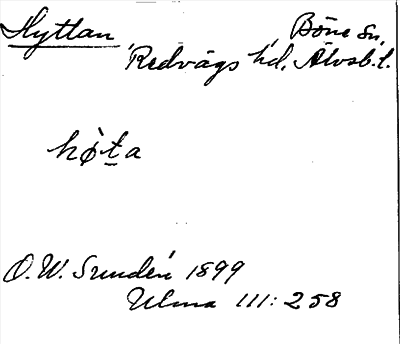 Hyttan, Böne sn,
Redvägs hd, Älvsb. l.
hø̀ta
O.W. Sundén 1899
Ulma 111: 258